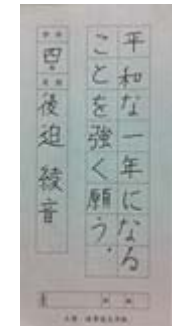 平和な一年になる
ことを強く願う。
四年
後迫 綾音